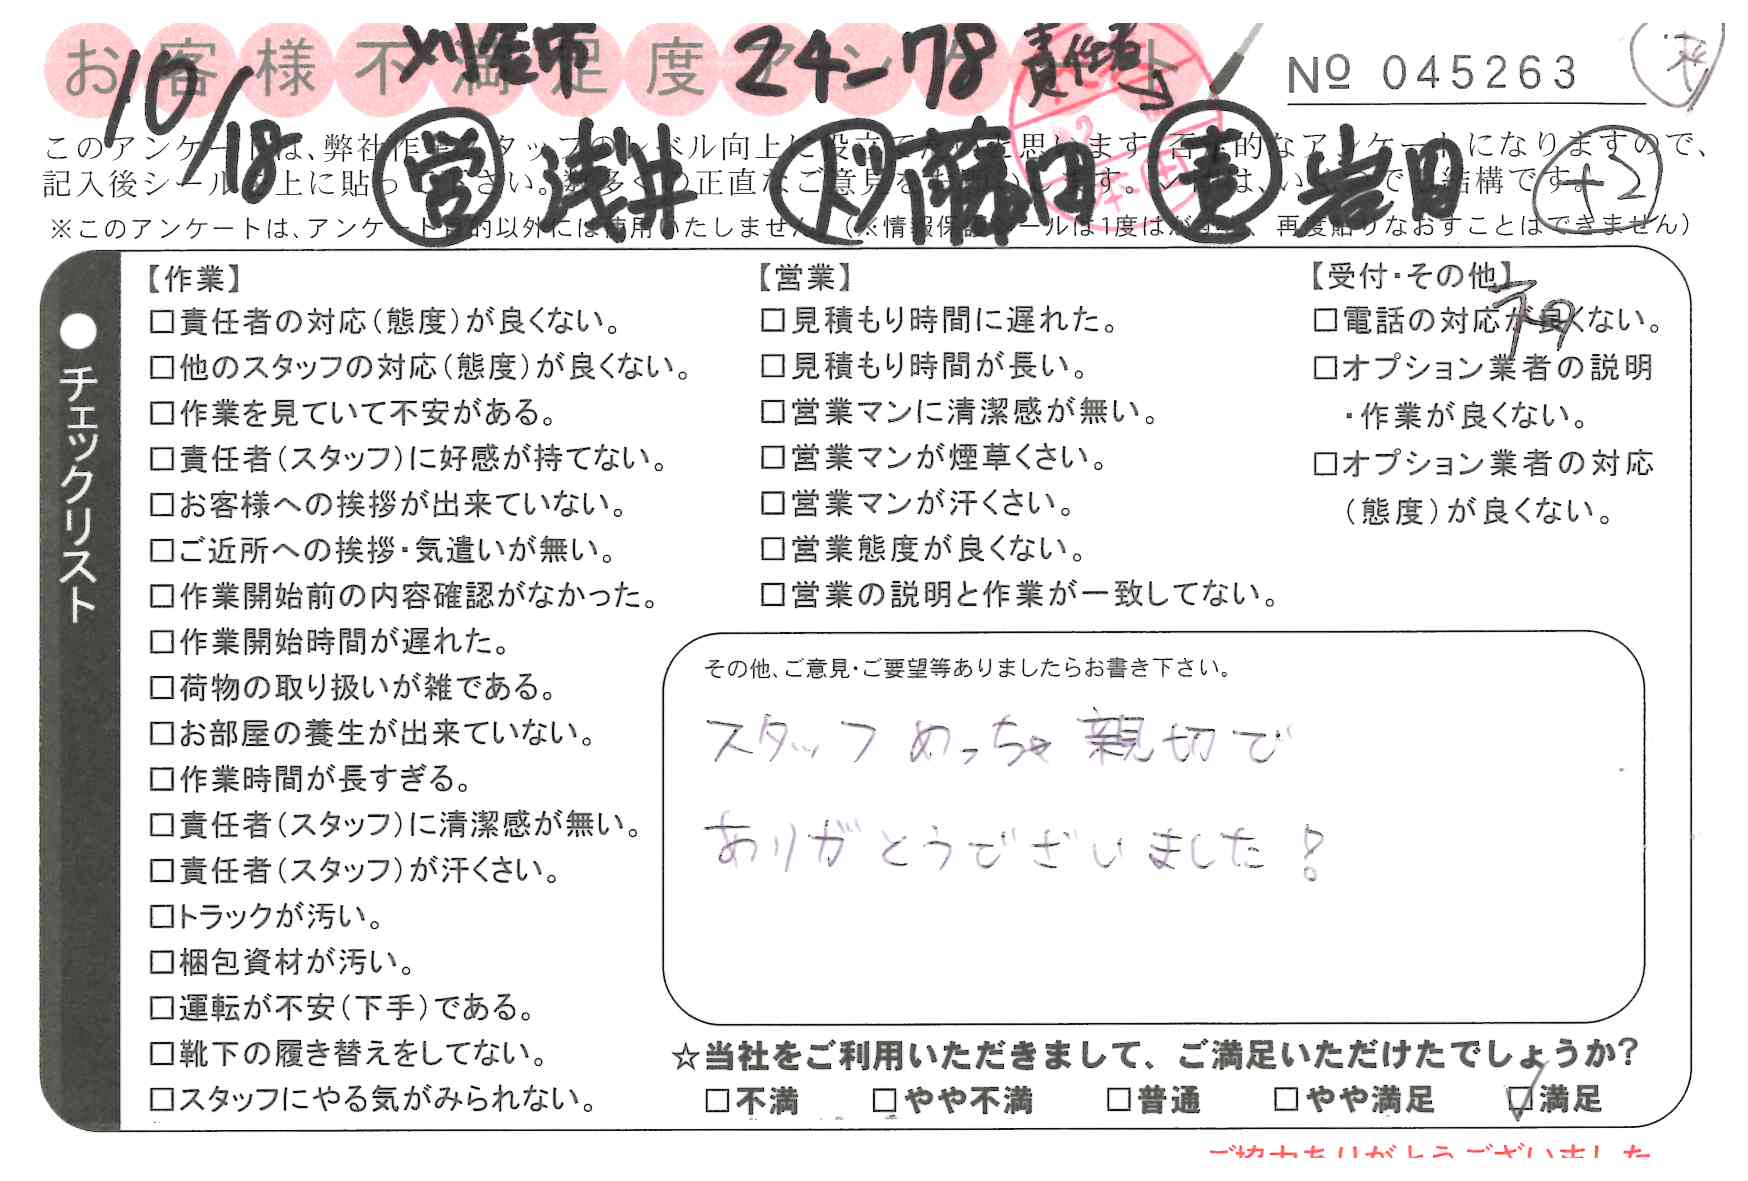 お客様不満足度アンケート
10/18 刈谷市 24-78 責任者
№ 045263
営 浅井 ド 藤田 責 岩田 +2
このアンケートは、弊社作業スタッフのレベル向上に役立てたいと思います。否定的なアンケートになりますので、
記入後シールを上に貼って下さい。数多くの正直なご意見をお願いします。シールは、いくつでも結構です。
※このアンケートは、アンケート目的以外には使用いたしません。(※情報保護シールは1度はがすと、再度貼りなおすことはできません)
●チェックリスト
【作業】
□責任者の対応(態度)が良くない。
□他のスタッフの対応(態度)が良くない。
□作業を見ていて不安がある。
□責任者(スタッフ)に好感が持てない。
□お客様への挨拶が出来ていない。
□ご近所への挨拶・気遣いが無い。
□作業開始前の内容確認がなかった。
□作業開始時間が遅れた。
□荷物の取り扱いが雑である。
□お部屋の養生が出来ていない。
□作業時間が長すぎる。
□責任者(スタッフ)に清潔感が無い。
□責任者(スタッフ)が汗くさい。
□トラックが汚い。
□梱包資材が汚い。
□運転が不安(下手)である。
□靴下の履き替えをしてない。
□スタッフにやる気がみられない。
【営業】
□見積もり時間に遅れた。
□見積もり時間が長い。
□営業マンに清潔感が無い。
□営業マンが煙草くさい。
□営業マンが汗くさい。
□営業態度が良くない。
□営業の説明と作業が一致してない。
【受付・その他】
□電話の対応が良くない。
□オプション業者の説明
・作業が良くない。
□オプション業者の対応
(態度)が良くない。
その他、ご意見・ご要望等ありましたらお書き下さい。
スタッフめっちゃ親切で
ありがとうございました!
☆当社をご利用いただきまして、ご満足いただけたでしょうか?
□不満 □やや不満 □普通 □やや満足 ☑満足
ご協力ありがとうございました